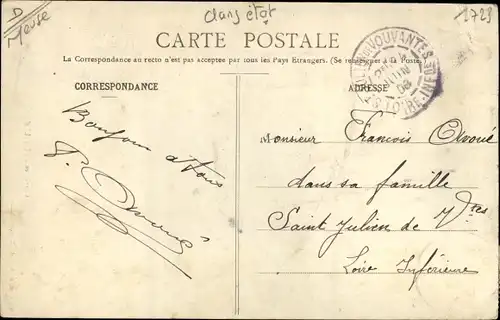 D
Meuse
dans état
1728
CARTE POSTALE
La Correspondance au recto n'est pas acceptée par tous les Pays Etrangers. (Se renseigner à la Poste)
CORRESPONDANCE
ADRESSE
VOUVANTES
LOIRE-INFRE
08
Bonjour à tous
Monsieur François
dans sa famille
Saint Julien de Vtes
Loire Inférieure